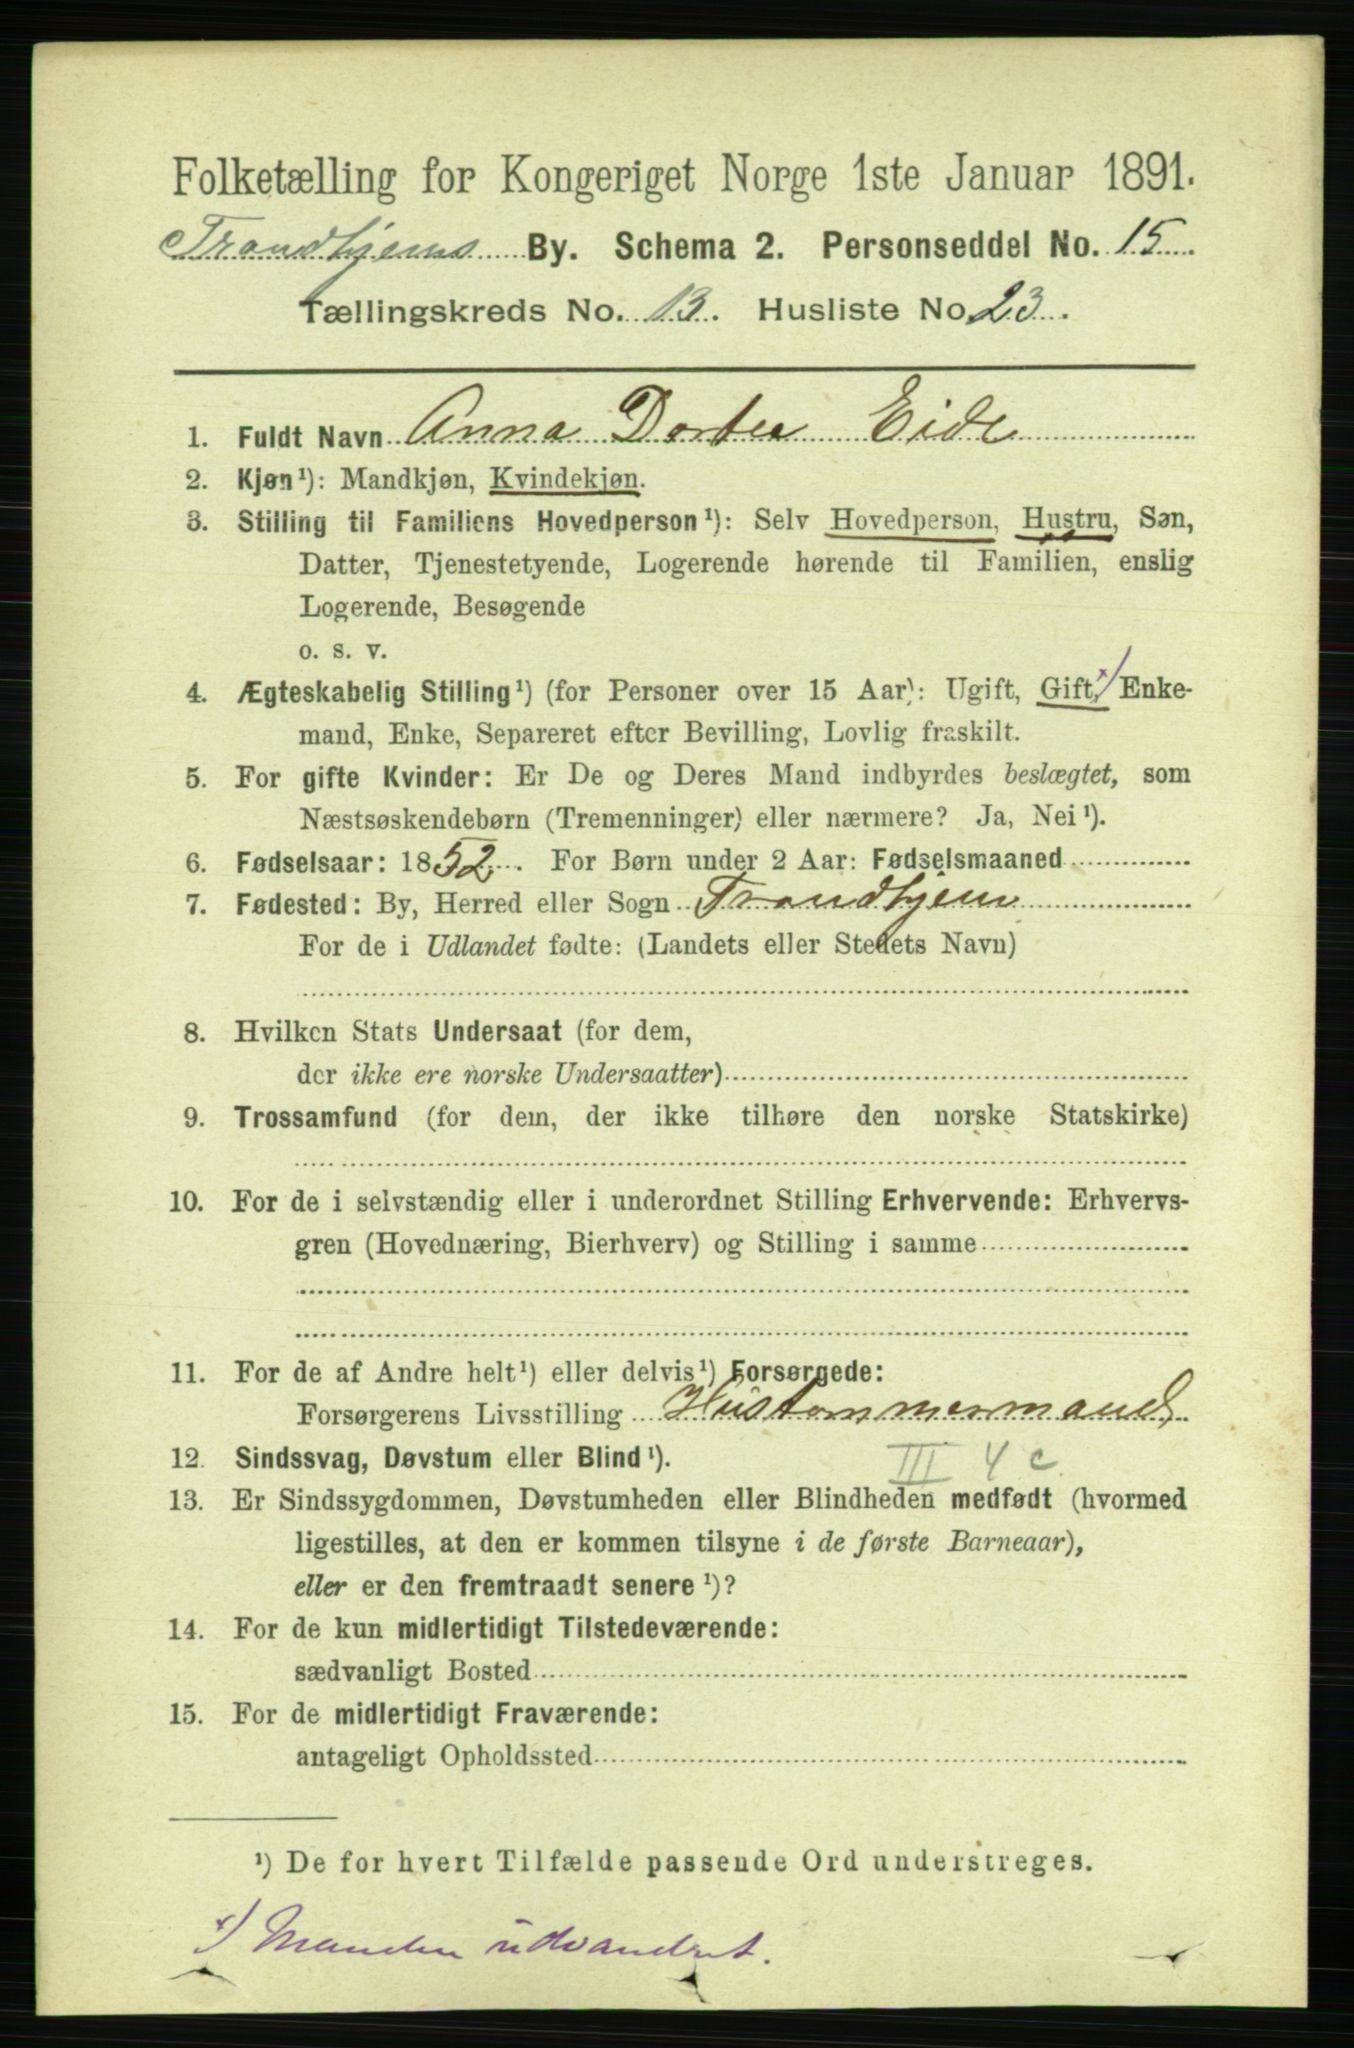 Folketælling for Kongeriget Norge 1ste Januar 1891.
Trondhjems By. Schema 2. Personseddel No. 15
Tællingskreds No. 13. Husliste No. 23.
1. Fuldt Navn Anna Dortea Eide
2. Kjøn¹): Mandkjøn, Kvindekjøn.
3. Stilling til Familiens Hovedperson¹): Selv Hovedperson, Hustru, Søn,
Datter, Tjenestetyende, Logerende hørende til Familien, enslig
Logerende, Besøgende
o. s. v.
4. Ægteskabelig Stilling¹) (for Personer over 15 Aar): Ugift, Gift, x) Enke-
mand, Enke, Separeret efter Bevilling, Lovlig fraskilt.
5. For gifte Kvinder: Er De og Deres Mand indbyrdes beslægtet, som
Næstsøskendebørn (Tremenninger) eller nærmere? Ja, Nei¹).
6. Fødselsaar: 1852. For Børn under 2 Aar: Fødselsmaaned
7. Fødested: By, Herred eller Sogn Trondhjem
For de i Udlandet fødte: (Landets eller Stedets Navn)
8. Hvilken Stats Undersaat (for dem,
der ikke ere norske Undersaatter)
9. Trossamfund (for dem, der ikke tilhøre den norske Statskirke)
10. For de i selvstændig eller i underordnet Stilling Erhvervende: Erhvervs-
gren (Hovednæring, Bierhverv) og Stilling i samme
11. For de af Andre helt¹) eller delvis¹) Forsørgede:
Forsørgerens Livsstilling Hustømmermand
12. Sindssvag, Døvstum eller Blind¹).
III 4 c
13. Er Sindssygdommen, Døvstumheden eller Blindheden medfødt (hvormed
ligestilles, at den er kommen tilsyne i de første Barneaar),
eller er den fremtraadt senere¹)?
14. For de kun midlertidigt Tilstedeværende:
sædvanligt Bosted
15. For de midlertidigt Fraværende:
antageligt Opholdssted
¹) De for hvert Tilfælde passende Ord understreges.
x) Manden udvandret.